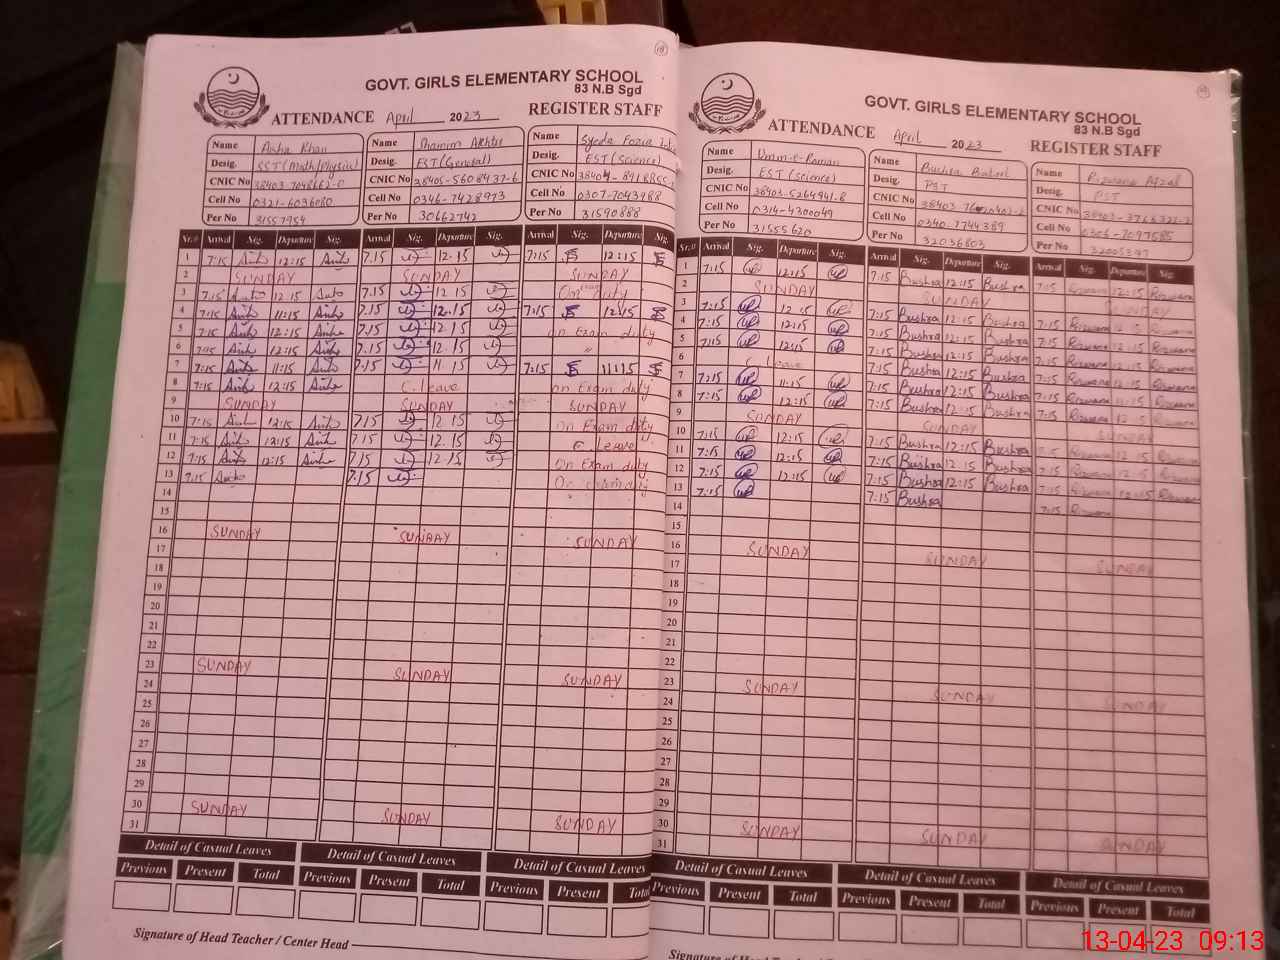 GOVT. GIRLS ELEMENTARY SCHOOL
83 N.B Sgd
ATTENDANCE April 2023 REGISTER STAFF
Name Aisha Khan Name Shamim Akhtar Name Syeda Fozia
Desig. SST (Math/Physics) Desig. EST (General) Desig. EST (Science)
CNIC No CNIC No CNIC No
Cell No 0321-6036080 Cell No 0346-7428973 Cell No 0307-7043988
Per No 31557954 Per No 30662742 Per No 31590888
Sr.# Arrival Sig. Departure Sig. Arrival Sig. Departure Sig. Arrival Sig. Departure Sig.
1 7:15 12:15 7.15 12.15 7:15 12:15
2 SUNDAY SUNDAY SUNDAY
3 7:15 12:15 7.15 12 15 On duty
4 7:15 11:15 7.15 12.15 7:15 12:15
5 7:15 12:15 7.15 12.15 on Exam duty
6 7:15 12:15 7.15 12.15 "
7 7:15 11:15 7.15 11.15 7:15 11:15
8 7:15 12:15 C.leave on Exam duty
9 SUNDAY SUNDAY SUNDAY
10 7:15 12:15 7.15 12.15 on Exam duty
11 7:15 12:15 7.15 12.15 C Leave
12 7:15 12:15 7.15 12.15 on Exam duty
13 7:15 7.15 duty
14
15
16 SUNDAY SUNDAY SUNDAY
17
18
19
20
21
22
23 SUNDAY SUNDAY SUNDAY
24
25
26
27
28
29
30 SUNDAY SUNDAY SUNDAY
31
Detail of Casual Leaves Detail of Casual Leaves Detail of Casual Leaves
Previous Present Total Previous Present Total Previous Present
Signature of Head Teacher / Center Head
GOVT. GIRLS ELEMENTARY SCHOOL
83 N.B Sgd
ATTENDANCE April 2023 REGISTER STAFF
Name Umm-e-Roman Name Bushra Batool Name Rizwana Afzal
Desig. EST (science) Desig. PST Desig. PST
CNIC No 38403-5264941-8 CNIC No CNIC No
Cell No 0314-4300049 Cell No 0340-7744389 Cell No 0306-7097585
Per No 31555620 Per No 32036803 Per No
Sr.# Arrival Sig. Departure Sig. Arrival Sig. Departure Sig. Arrival Sig. Departure Sig.
1 7:15 12:15 7:15 Bushra 12:15 Bushra 7:15 Rizwana 12:15 Rizwana
2 SUNDAY SUNDAY SUNDAY
3 7:15 12:15 7:15 Bushra 12:15 Bushra 7:15 Rizwana 12:15 Rizwana
4 7:15 12:15 7:15 Bushra 12:15 Bushra 7:15 Rizwana 12:15 Rizwana
5 7:15 12:15 7:15 Bushra 12:15 Bushra 7:15 Rizwana 12:15 Rizwana
6 Leave 7:15 Bushra 12:15 Bushra 7:15 Rizwana 12:15 Rizwana
7 7:15 11:15 7:15 Bushra Bushra 7:15 Rizwana Rizwana
8 7:15 12:15 7:15 Bushra 12:15 Bushra 7:15 Rizwana 12:15 Rizwana
9 SUNDAY SUNDAY SUNDAY
10 7:15 12:15 7:15 Bushra 12:15 Bushra 7:15 Rizwana 12:15 Rizwana
11 7:15 12:15 7:15 Bushra 12:15 Bushra 7:15 Rizwana 12:15 Rizwana
12 7:15 12:15 7:15 Bushra 12:15 Bushra 7:15 Rizwana 12:15 Rizwana
13 7:15 7:15 Bushra 7:15 Rizwana
14
15
16 SUNDAY SUNDAY SUNDAY
17
18
19
20
21
22
23 SUNDAY SUNDAY SUNDAY
24
25
26
27
28
29
30 SUNDAY SUNDAY SUNDAY
31
Detail of Casual Leaves Detail of Casual Leaves Detail of Casual Leaves
Previous Present Total Previous Present Total Previous Present Total
13-04-23 09:13